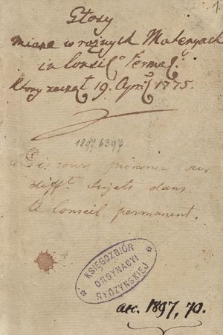 Głosy
miane w rożnych Materyach
in Consil° Perma[
który zaczął 19. April 1775.
1897/6397
Discours prononcés sur
diff. sujets dans
le Conseil permanent.
KSIĘGOZBIÓR
ORDYNACYI
acc. 1897, 70.